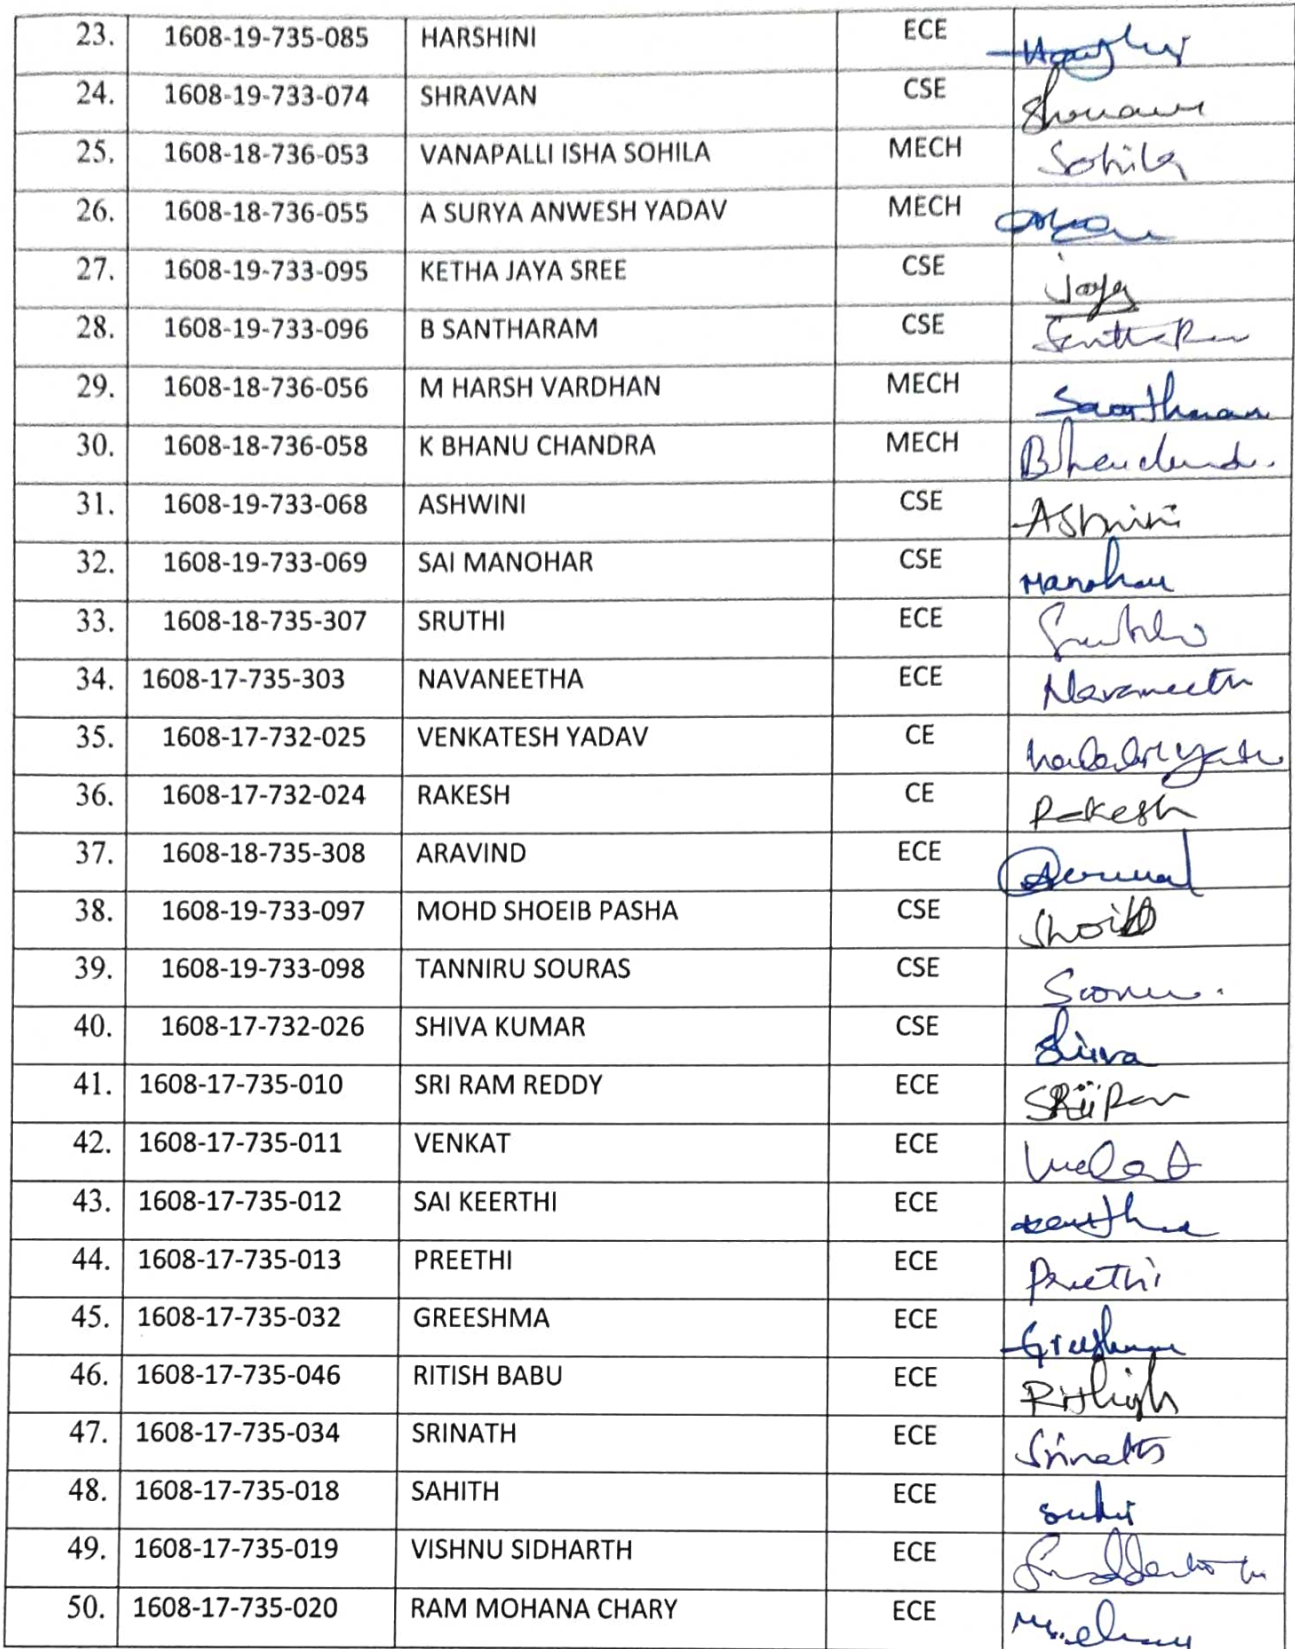 23. 1608-19-735-085 HARSHINI ECE
24. 1608-19-733-074 SHRAVAN CSE
25. 1608-18-736-053 VANAPALLI ISHA SOHILA MECH Sohila
26. 1608-18-736-055 A SURYA ANWESH YADAV MECH
27. 1608-19-733-095 KETHA JAYA SREE CSE Jaya
28. 1608-19-733-096 B SANTHARAM CSE
29. 1608-18-736-056 M HARSH VARDHAN MECH
30. 1608-18-736-058 K BHANU CHANDRA MECH
31. 1608-19-733-068 ASHWINI CSE
32. 1608-19-733-069 SAI MANOHAR CSE Manohar
33. 1608-18-735-307 SRUTHI ECE
34. 1608-17-735-303 NAVANEETHA ECE
35. 1608-17-732-025 VENKATESH YADAV CE
36. 1608-17-732-024 RAKESH CE Rakesh
37. 1608-18-735-308 ARAVIND ECE
38. 1608-19-733-097 MOHD SHOEIB PASHA CSE
39. 1608-19-733-098 TANNIRU SOURAS CSE
40. 1608-17-732-026 SHIVA KUMAR CSE Shiva
41. 1608-17-735-010 SRI RAM REDDY ECE
42. 1608-17-735-011 VENKAT ECE
43. 1608-17-735-012 SAI KEERTHI ECE
44. 1608-17-735-013 PREETHI ECE Preethi
45. 1608-17-735-032 GREESHMA ECE
46. 1608-17-735-046 RITISH BABU ECE
47. 1608-17-735-034 SRINATH ECE Srinath
48. 1608-17-735-018 SAHITH ECE
49. 1608-17-735-019 VISHNU SIDHARTH ECE
50. 1608-17-735-020 RAM MOHANA CHARY ECE